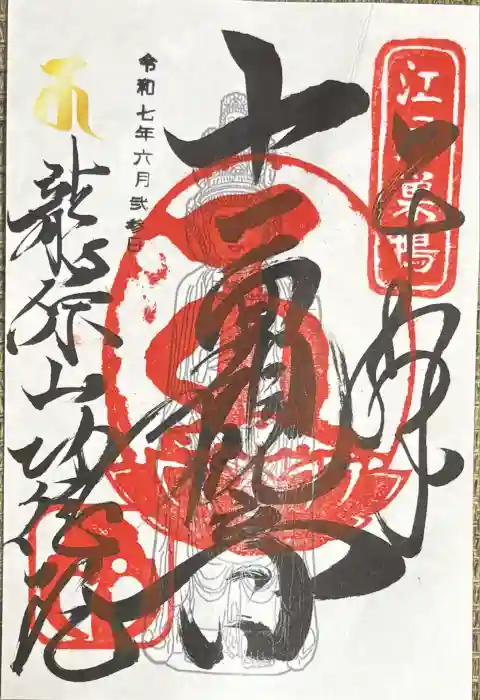 江戸巣鴨
上拝
十一面観音
令和七年六月弐拾日
龍原山功徳院